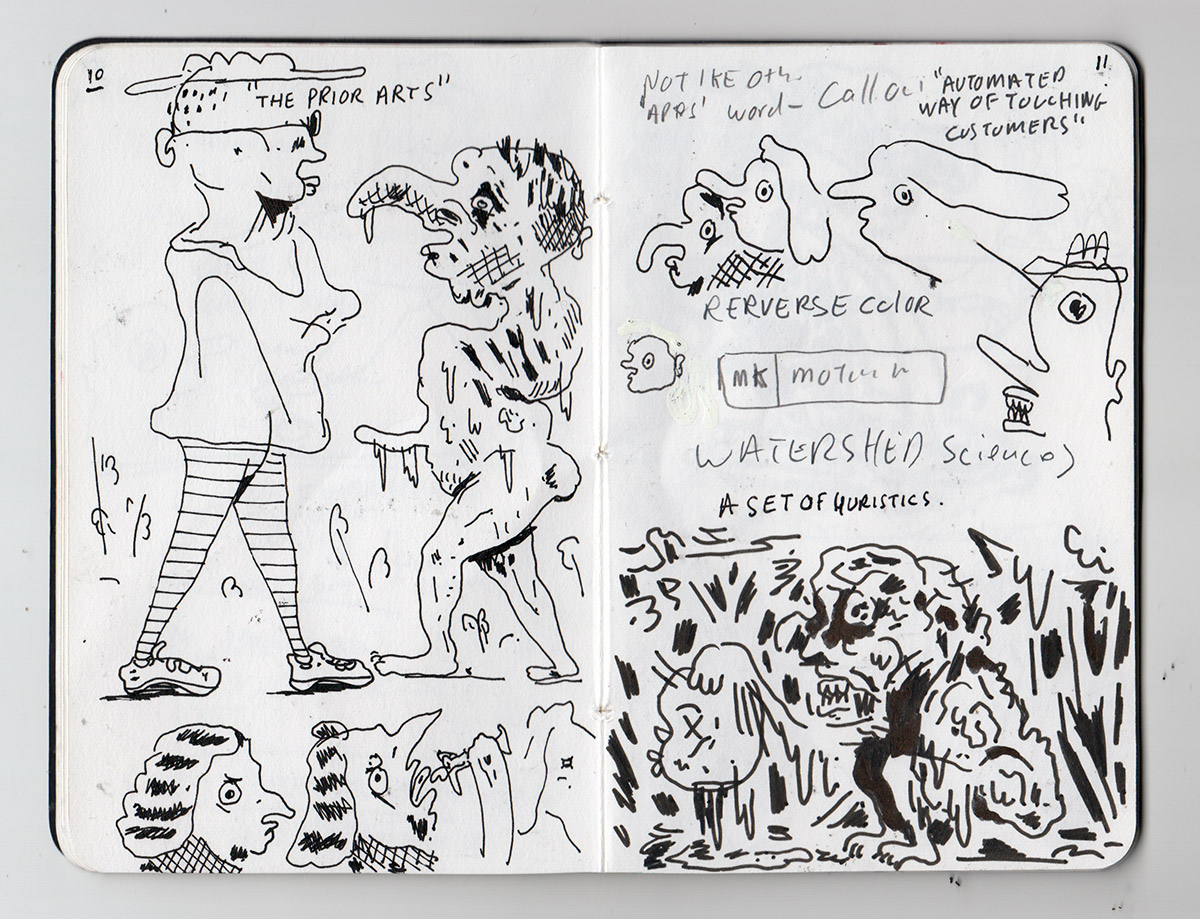 10
"THE PRIOR ARTS"
11
NOT IKE Oth
'APPS' word- Call ou
"AUTOMATED
WAY OF TOUCHING
CUSTOMERS"
RERVERSE COLOR
MK
WATERSHED Sciences
A SET OF HURISTICS.